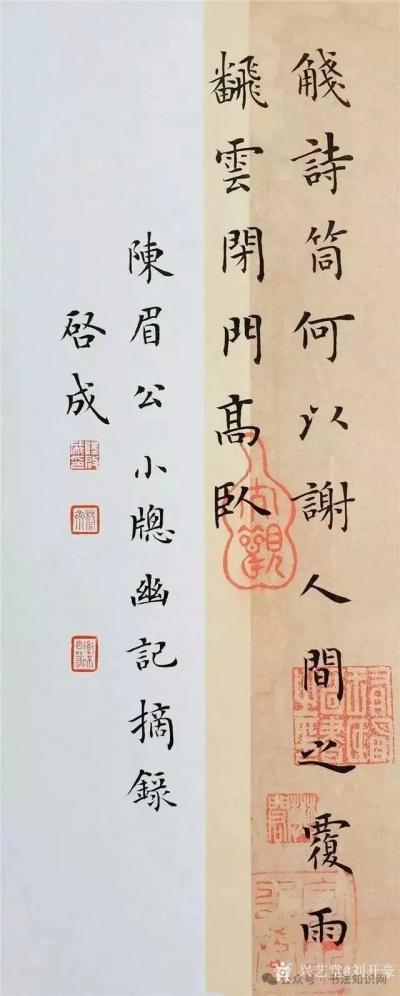 詩筒何以謝人間之覆雨
飜雲閉門髙臥
陳眉公小牕幽記摘錄
启成
兴艺堂@刘开豪
公众号·书法知识网